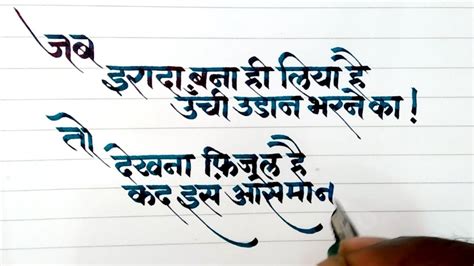 जब
इरादा बना ही लिया है
उंची उडान भरने का !
तो
देखना फ़िजूल है
कद इस आसमान